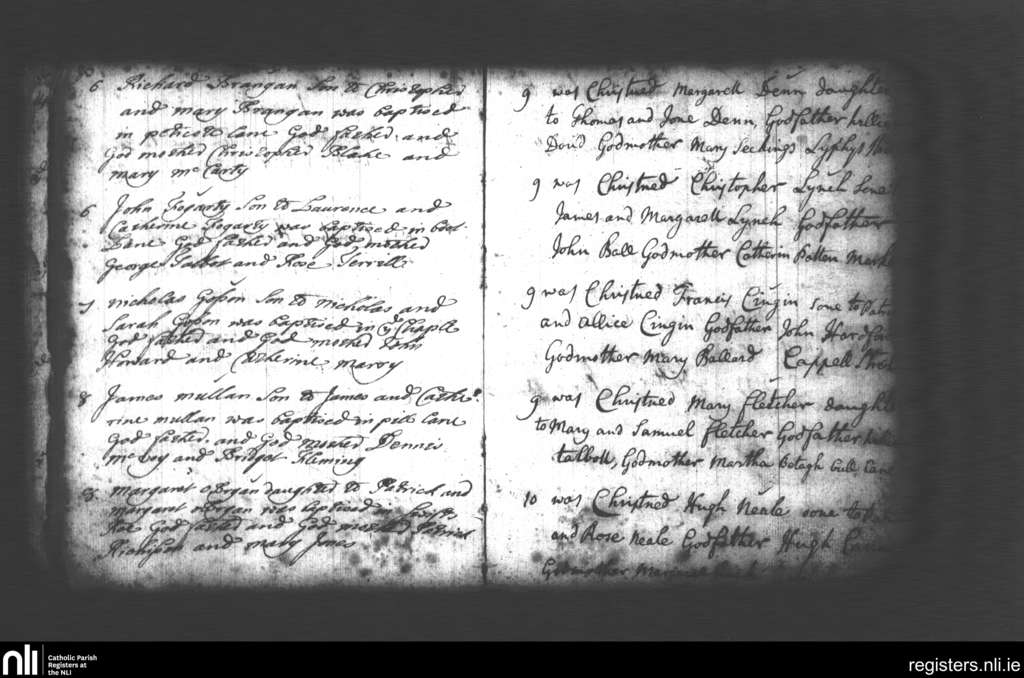 6 Richard Brangan Son to Christopher
and mary Brangan was baptised
in peticote lane God father and
God mother Christopher Blake and
mary mc Carty
6 John Fogarty Son to Laurence and
Catherine Fogarty was baptised in boot
Lane God father and God mother
George Talbot and Rose Terrill
7 nicholas Gosson Son to nicholas and
Sarah Gosson was baptised in ye Chaple
God father and God mother
Howard and Catherine marvy
8 James mullan Son to James and Cathe
rine mullan was baptised in pill lane
God father and God mother Dennis
mc Evoy and Bridget Fleming
8 margaret daughter to Patrick and
margaret was baptised in
God father and God mother Patrick
and mary Jones
9 was Christned Margarett Denn daughter
to Thomas and Jone Denn, Godfather
Godmother Mary Lyffys
9 was Christned Christopher Lynch Sone
James and Margarett Lynch Godfather
John Ball Godmother Catherin Patten
9 was Christned Francis Cingin sone to
and Allice Cingin Godfather John
Godmother Mary Ballard Cappell
9 was Christned Mary Fletcher daught
to Mary and Samuel Fletcher Godfather
talbott, Godmother Martha Betagh Bull Lane
10 was Christned Hugh Neale sone to
and Rose Neale Godfather Hugh
Godmother
nli
Catholic Parish
Registers at
the NLI
registers.nli.ie